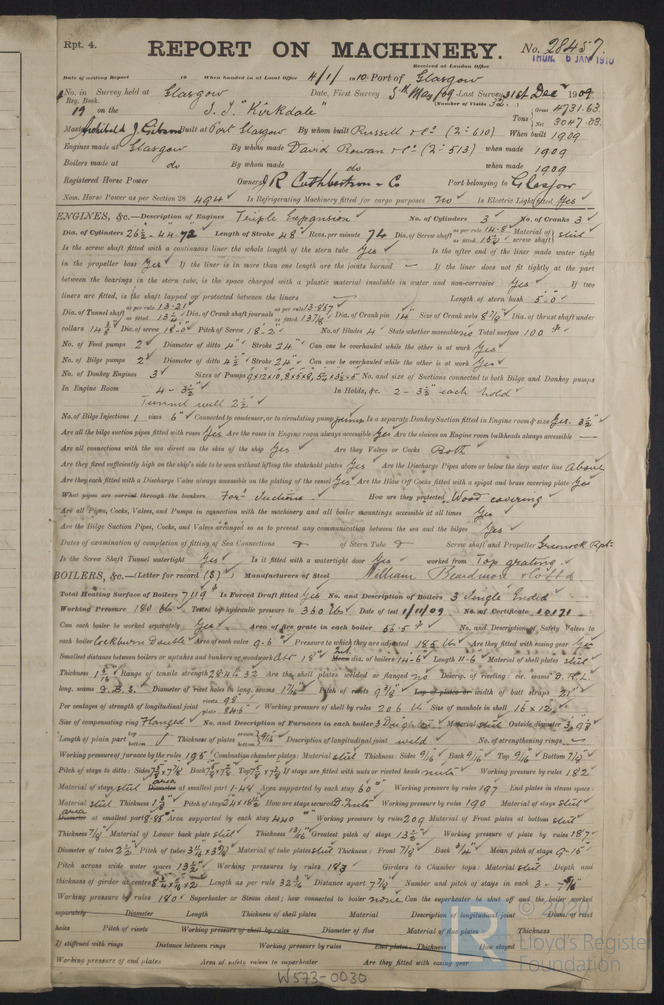 Rpt. 4.
REPORT ON MACHINERY.
No. 28457.
Received at London Office
THUR. 6 JAN 1910
Date of writing Report 19 When handed in at Local Office 4/1/1910. Port of Glasgow
No. in Survey held at Glasgow Date, First Survey 5th May /09 Last Survey 31st Dec 1909
Reg. Book. (Number of Visits 32.)
19 on the S.S. "Kirkdale" Tons Gross 4731.63 Net 3047.03
Master Archibald J. Built at Port Glasgow By whom built Russell & Co (2=610) When built 1909
Engines made at Glasgow By whom made David Rowan & Co (2=513) when made 1909
Boilers made at do By whom made do when made 1909
Registered Horse Power Owners J R Cuthbertson & Co Port belonging to Glasgow
Nom. Horse Power as per Section 28 494 Is Refrigerating Machinery fitted for cargo purposes no Is Electric Light fitted Yes
ENGINES, &c.—Description of Engines Triple Expansion No. of Cylinders 3 No. of Cranks 3
Dia. of Cylinders 26½ - 44 - 72 Length of Stroke 48 Revs. per minute 74 Dia. of Screw shaft as per rule 14.8 as fitted 15¼ Material of screw shaft steel
Is the screw shaft fitted with a continuous liner the whole length of the stern tube Yes Is the after end of the liner made water tight
in the propeller boss Yes If the liner is in more than one length are the joints burned — If the liner does not fit tightly at the part
between the bearings in the stern tube, is the space charged with a plastic material insoluble in water and non-corrosive Yes If two
liners are fitted, is the shaft lapped or protected between the liners — Length of stern bush 5-0
Dia. of Tunnel shaft as per rule 13.21 as fitted 13¼ Dia. of Crank shaft journals as per rule 13.867 as fitted 13⅞ Dia. of Crank pin 14" Size of Crank webs 8⅞ Dia. of thrust shaft under
collars 14⅛ Dia. of screw 18-0 Pitch of Screw 18-2 No. of Blades 4 State whether moveable no Total surface 100
No. of Feed pumps 2 Diameter of ditto 4 Stroke 24" Can one be overhauled while the other is at work Yes
No. of Bilge pumps 2 Diameter of ditto 4½ Stroke 24" Can one be overhauled while the other is at work Yes
No. of Donkey Engines 3 Sizes of Pumps No. and size of Suctions connected to both Bilge and Donkey pumps
In Engine Room 4 - 3½" In Holds, &c. 2 - 3½" each hold
Tunnel well 2½"
No. of Bilge Injections 1 sizes 6" Connected to condenser, or to circulating pump pump Is a separate Donkey Suction fitted in Engine room & size Yes. 3½"
Are all the bilge suction pipes fitted with roses Yes Are the roses in Engine room always accessible Yes Are the sluices on Engine room bulkheads always accessible —
Are all connections with the sea direct on the skin of the ship Yes Are they Valves or Cocks Both
Are they fixed sufficiently high on the ship's side to be seen without lifting the stokehold plates Yes Are the Discharge Pipes above or below the deep water line Above
Are they each fitted with a Discharge Valve always accessible on the plating of the vessel Yes Are the Blow Off Cocks fitted with a spigot and brass covering plate Yes
What pipes are carried through the bunkers For'd Suctions How are they protected Wood covering
Are all Pipes, Cocks, Valves, and Pumps in connection with the machinery and all boiler mountings accessible at all times Yes
Are the Bilge Suction Pipes, Cocks, and Valves arranged so as to prevent any communication between the sea and the bilges Yes
Dates of examination of completion of fitting of Sea Connections of Stern Tube Screw shaft and Propeller Greenock Rpt.
Is the Screw Shaft Tunnel watertight Yes Is it fitted with a watertight door Yes worked from Top grating
BOILERS, &c.—(Letter for record (S)) Manufacturers of Steel William Beardmore & Co Ltd
Total Heating Surface of Boilers 7119 Is Forced Draft fitted Yes No. and Description of Boilers 3 Single Ended
Working Pressure 180 lbs Tested by hydraulic pressure to 360 lbs Date of test 1/11/09 No. of Certificate 10171
Can each boiler be worked separately Yes Area of fire grate in each boiler 56.5 No. and Description of Safety Valves to
each boiler Cockburn Double Area of each valve 9.6" Pressure to which they are adjusted 185 lbs Are they fitted with easing gear Yes
Smallest distance between boilers or uptakes and bunkers or woodwork abt 18" Int. dia. of boilers 14-6 Length 11-6 Material of shell plates steel
Thickness Range of tensile strength 28 & 32 Are the shell plates welded or flanged no Descrip. of riveting: cir. seams D.R.L.
long. seams D.B.S. Diameter of rivet holes in long. seams Pitch of rivets 9 Lap of plates or width of butt straps 21"
Per centages of strength of longitudinal joint rivets 98 plate 84.6 Working pressure of shell by rules 206 lb Size of manhole in shell 16 x 12
Size of compensating ring Flanged No. and Description of Furnaces in each boiler 3 Deighton Material steel Outside diameter
Length of plain part top bottom Thickness of plates crown bottom 9/16 Description of longitudinal joint weld No. of strengthening rings —
Working pressure of furnace by the rules 195 Combustion chamber plates: Material steel Thickness: Sides 9/16 Back 9/16 Top 9/16 Bottom 7/8
Pitch of stays to ditto: Sides Back Top If stays are fitted with nuts or riveted heads nuts Working pressure by rules 182
Material of stays steel area at smallest part 1.48 Area supported by each stay 60 Working pressure by rules 197 End plates in steam space:
Material steel Thickness Pitch of stays How are stays secured D. Nuts Working pressure by rules 190 Material of stays steel
area at smallest part 8.85 Area supported by each stay 440 Working pressure by rules 209 Material of Front plates at bottom steel
Thickness 7/8 Material of Lower back plate steel Thickness 13/16 Greatest pitch of stays 13½ Working pressure of plate by rules 187
Diameter of tubes 2½ Pitch of tubes Material of tube plates steel Thickness: Front 7/8 Back 3/4 Mean pitch of stays
Pitch across wide water spaces 13½ Working pressures by rules 183 Girders to Chamber tops: Material steel Depth and
thickness of girder at centre Length as per rule Distance apart Number and pitch of stays in each
Working pressure by rules 180 Superheater or Steam chest; how connected to boiler none Can the superheater be shut off and the boiler worked
separately Diameter Length Thickness of shell plates Material Description of longitudinal joint Diam. of rivet
holes Pitch of rivets Working pressure of shell by rules Diameter of flue Material of flue plates Thickness
If stiffened with rings Distance between rings Working pressure by rules End plates: Thickness How stayed
Working pressure of end plates Area of safety valves to superheater Are they fitted with easing gear
W573-0030
© 2020
LR
Lloyd's Register
Foundation